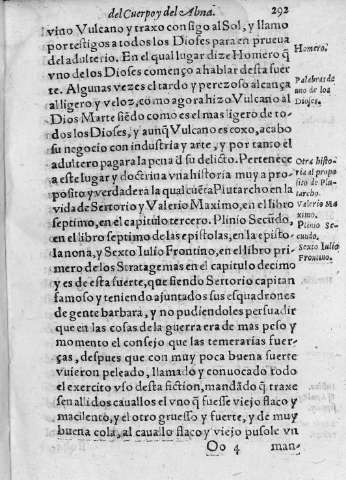 del Cuerpo y del Alma. 292
vino Vulcano y traxo consigo al Sol, y llamo
por testigos a todos los Dioses para en prueua
del adulterio. En el qual lugar dize Homero q̃
vno de los Dioses començo a hablar desta suer
te. Algunas vezes el tardo y perezoso alcança
al ligero y veloz, como agora hizo Vulcano al
Dios Marte siẽdo como es el mas ligero de to-
dos los Dioses, y aunq̃ Vulcano es coxo, acabo
su negocio con industria y arte, y por tanto el
adultero pagara la pena d̃ su delicto. Pertenece
a este lugar y doctrina vna historia muy a pro-
posito y verdadera la qual cuẽta Plutarcho en la
vida de Sertorio y Valerio Maximo, en el libro
septimo, en el capitulo tercero. Plinio Secũdo,
en el libro septimo de las epistolas, en la episto
la nona, y Sexto Iulio Frontino, en el libro pri-
mero de los Stratagemas en el capitulo decimo
y es de esta suerte, que siendo Sertorio capitan
famoso y teniendo ajuntados sus esquadrones
de gente barbara, y no pudiendoles persuadir
que en las cosas de la guerra era de mas peso y
momento el consejo que las temerarias fuer-
ças, despues que con muy poca buena suerte
vuieron peleado, llamado y conuocado todo
el exercito vso desta fiction, mandãdo q̃ traxe
sen alli dos cauallos el vno q̃ fuesse viejo flaco y
macilento, y el otro gruesso y fuerte, y de muy
buena cola, al cauallo flaco y viejo pusole vn
Oo 4 man-
Homero.
Palabras de
uno de los
Dioses.
Otra histo-
ria al propo
sito de Plu-
tarcho.
Valerio Ma
ximo.
Plinio Se-
cundo.
Sexto Iulio
Frontino.